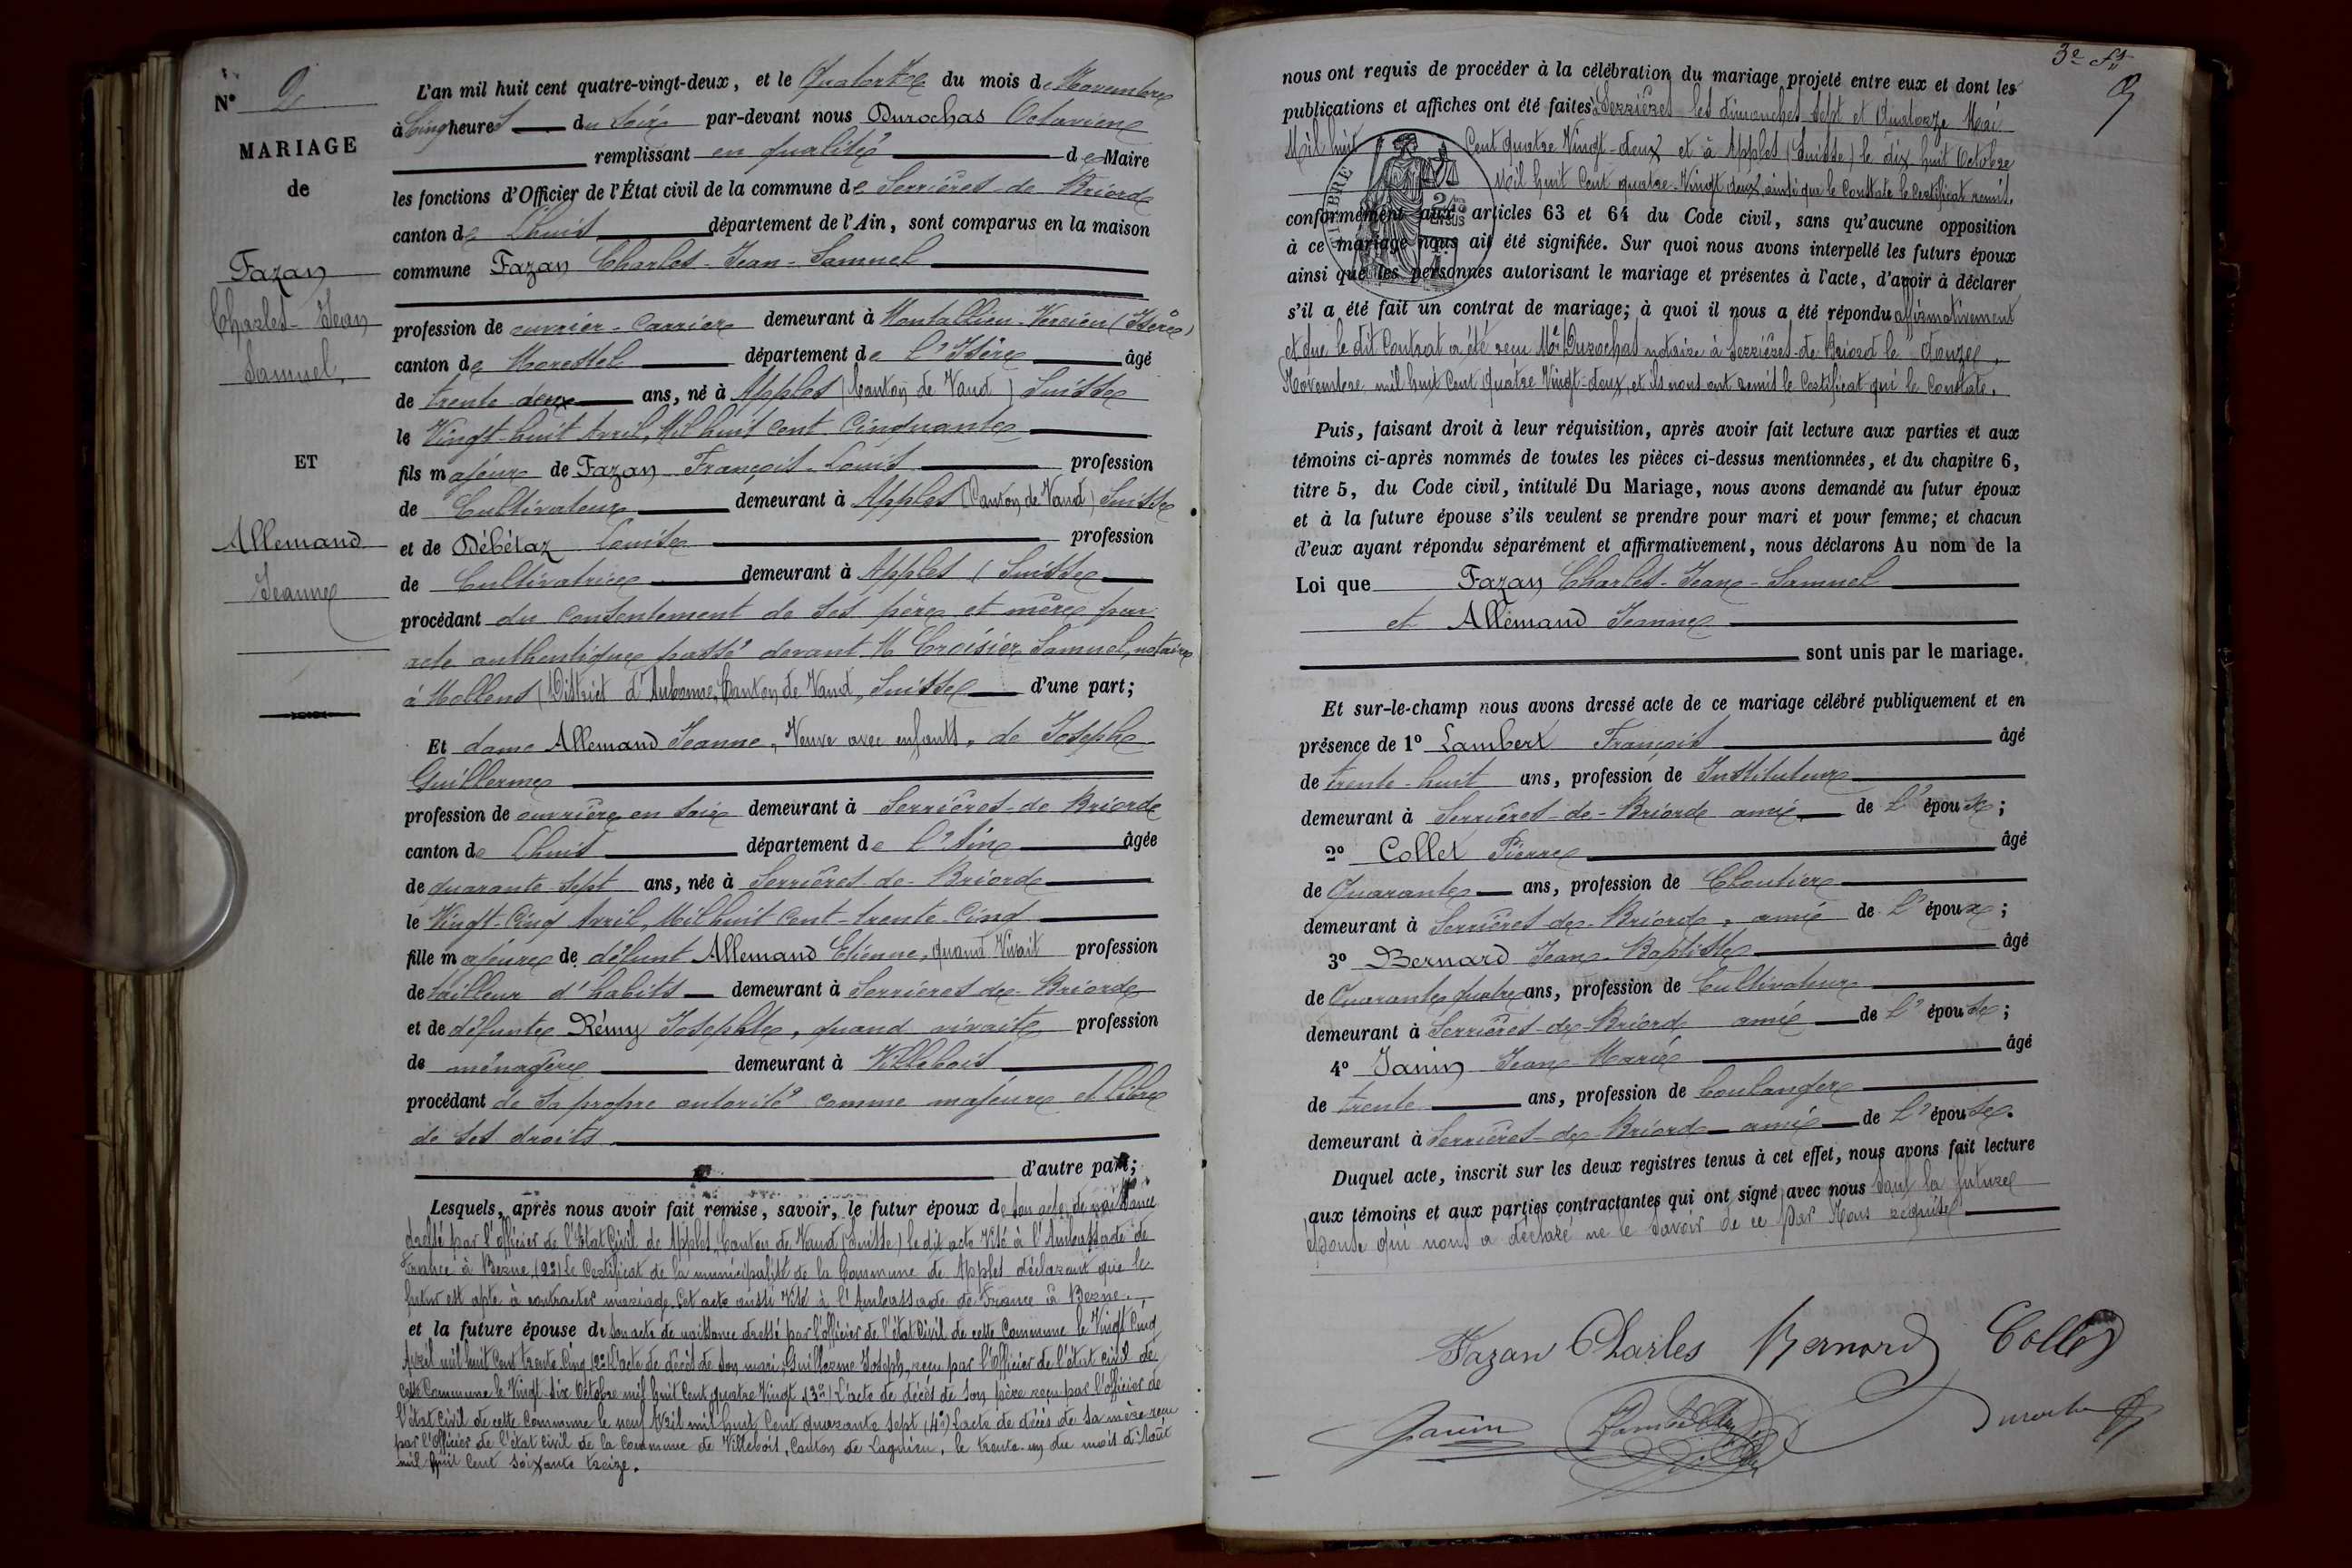 N° 9
MARIAGE
de
Fazan
Charles-Jean
Samuel,
ET
Allemand
Jeanne
L'an mil huit cent quatre-vingt-deux, et le Quatorze du mois de Novembre
à Cinq heures du Soir par-devant nous Durochas Octavien
remplissant en qualité de Maire
les fonctions d'Officier de l'État civil de la commune de Serrières-de Briord
canton de Lhuis département de l'Ain, sont comparus en la maison
commune Fazan Charles-Jean-Samuel
profession de ouvrier-Carrier demeurant à Montallieu-Vercieu (Isère)
canton de Morestel département de l'Isère âgé
de trente-deux ans, né à Apples (Canton de Vaud) Suisse
le Vingt-huit Avril, Mil huit cent Cinquante
fils majeur de Fazan François-Louis profession
de Cultivateur demeurant à Apples (Canton de Vaud) Suisse
et de Débétaz Louise profession
de Cultivatrice demeurant à Apples (Suisse
procédant du consentement de ses père et mère par
acte authentique passé devant M Croisier Samuel, notaire
à Mollens (District d'Aubonne, Canton de Vaud, Suisse d'une part;
Et dame Allemand Jeanne, Veuve avec enfants, de Joseph
Guillerme
profession de ouvrière en soie demeurant à Serrières-de Briord
canton de Lhuis département de l'Ain âgée
de quarante-sept ans, née à Serrières-de-Briord
le Vingt-Cinq Avril, Mil huit Cent-trente-Cinq
fille majeure de défunt Allemand Etienne, quand Vivait profession
de tailleur d'habits demeurant à Serrières de-Briord
et de défunte Rémy Josephte, quand vivait profession
de ménagère demeurant à Villebois
procédant de sa propre autorité comme majeure et libre
de ses droits
d'autre part;
Lesquels, après nous avoir fait remise, savoir, le futur époux de son acte de naissance
dressé par l'officier de l'Etat Civil de Apples, Canton de Vaud (Suisse) le dit acte Visé à l'Ambassade de
France à Berne, (2°) Le Certificat de la municipalité de la Commune de Apples déclarant que le
futur est apte à contracter mariage. Cet acte aussi Visé à l'Ambassade de France à Berne.
et la future épouse de son acte de naissance dressé par l'officier de l'état Civil de cette Commune le Vingt Cinq
Avril mil huit Cent trente Cinq (2°) L'acte de décès de son mari, Guillerme Joseph, reçu par l'Officier de l'état civil de
cette Commune le Vingt-six Octobre mil huit Cent quatre Vingt (3°) L'acte de décès de son père reçu par l'officier de
l'état civil de cette Commune le neuf Avril mil huit Cent quarante sept (4°) L'acte de décès de sa mère reçu
par l'Officier de l'état civil de la Commune de Villebois, Canton de Lagnieu, le trente-un du mois d'Août
mil huit Cent soixante treize.
3e
9
nous ont requis de procéder à la célébration du mariage projeté entre eux et dont les
publications et affiches ont été faites à Serrières les dimanches Sept et Quatorze Mai
Mil huit Cent quatre Vingt-deux et à Apples (Suisse) le dix huit Octobre
Mil huit Cent quatre-Vingt deux, ainsi que le Constate le Certificat remis.
conformément aux articles 63 et 64 du Code civil, sans qu'aucune opposition
à ce mariage nous ait été signifiée. Sur quoi nous avons interpellé les futurs époux
ainsi que les personnes autorisant le mariage et présentes à l'acte, d'avoir à déclarer
s'il a été fait un contrat de mariage; à quoi il nous a été répondu affirmativement
et que le dit Contrat a été reçu Me Durochas notaire à Serrières-de Briord le douze
Novembre mil huit Cent Quatre Vingt-deux, et ils nous ont remis le Certificat qui le Constate.
Puis, faisant droit à leur réquisition, après avoir fait lecture aux parties et aux
témoins ci-après nommés de toutes les pièces ci-dessus mentionnées, et du chapitre 6,
titre 5, du Code civil, intitulé Du Mariage, nous avons demandé au futur époux
et à la future épouse s'ils veulent se prendre pour mari et pour femme; et chacun
d'eux ayant répondu séparément et affirmativement, nous déclarons Au nom de la
Loi que Fazan Charles-Jean-Samuel
et Allemand Jeanne
sont unis par le mariage.
Et sur-le-champ nous avons dressé acte de ce mariage célébré publiquement et en
présence de 1° Lambert François âgé
de trente-huit ans, profession de Instituteur
demeurant à Serrières-de-Briord ami de l'épouse;
2° Collet Pierre âgé
de Quarante ans, profession de Cloutier
demeurant à Serrières-de-Briord, ami de l'époux;
3° Bernard Jean-Baptiste âgé
de Quarante quatre ans, profession de Cultivateur
demeurant à Serrières-de-Briord ami de l'épouse;
4° Janin Jean-Marie âgé
de trente ans, profession de boulanger
demeurant à Serrières-de-Briord ami de l'épouse.
Duquel acte, inscrit sur les deux registres tenus à cet effet, nous avons fait lecture
aux témoins et aux parties contractantes qui ont signé avec nous sauf la future
épouse qui nous a déclaré ne le savoir de ce par Nous requise
Fazan Charles Bernard Collet
Janin Lambert Durochas